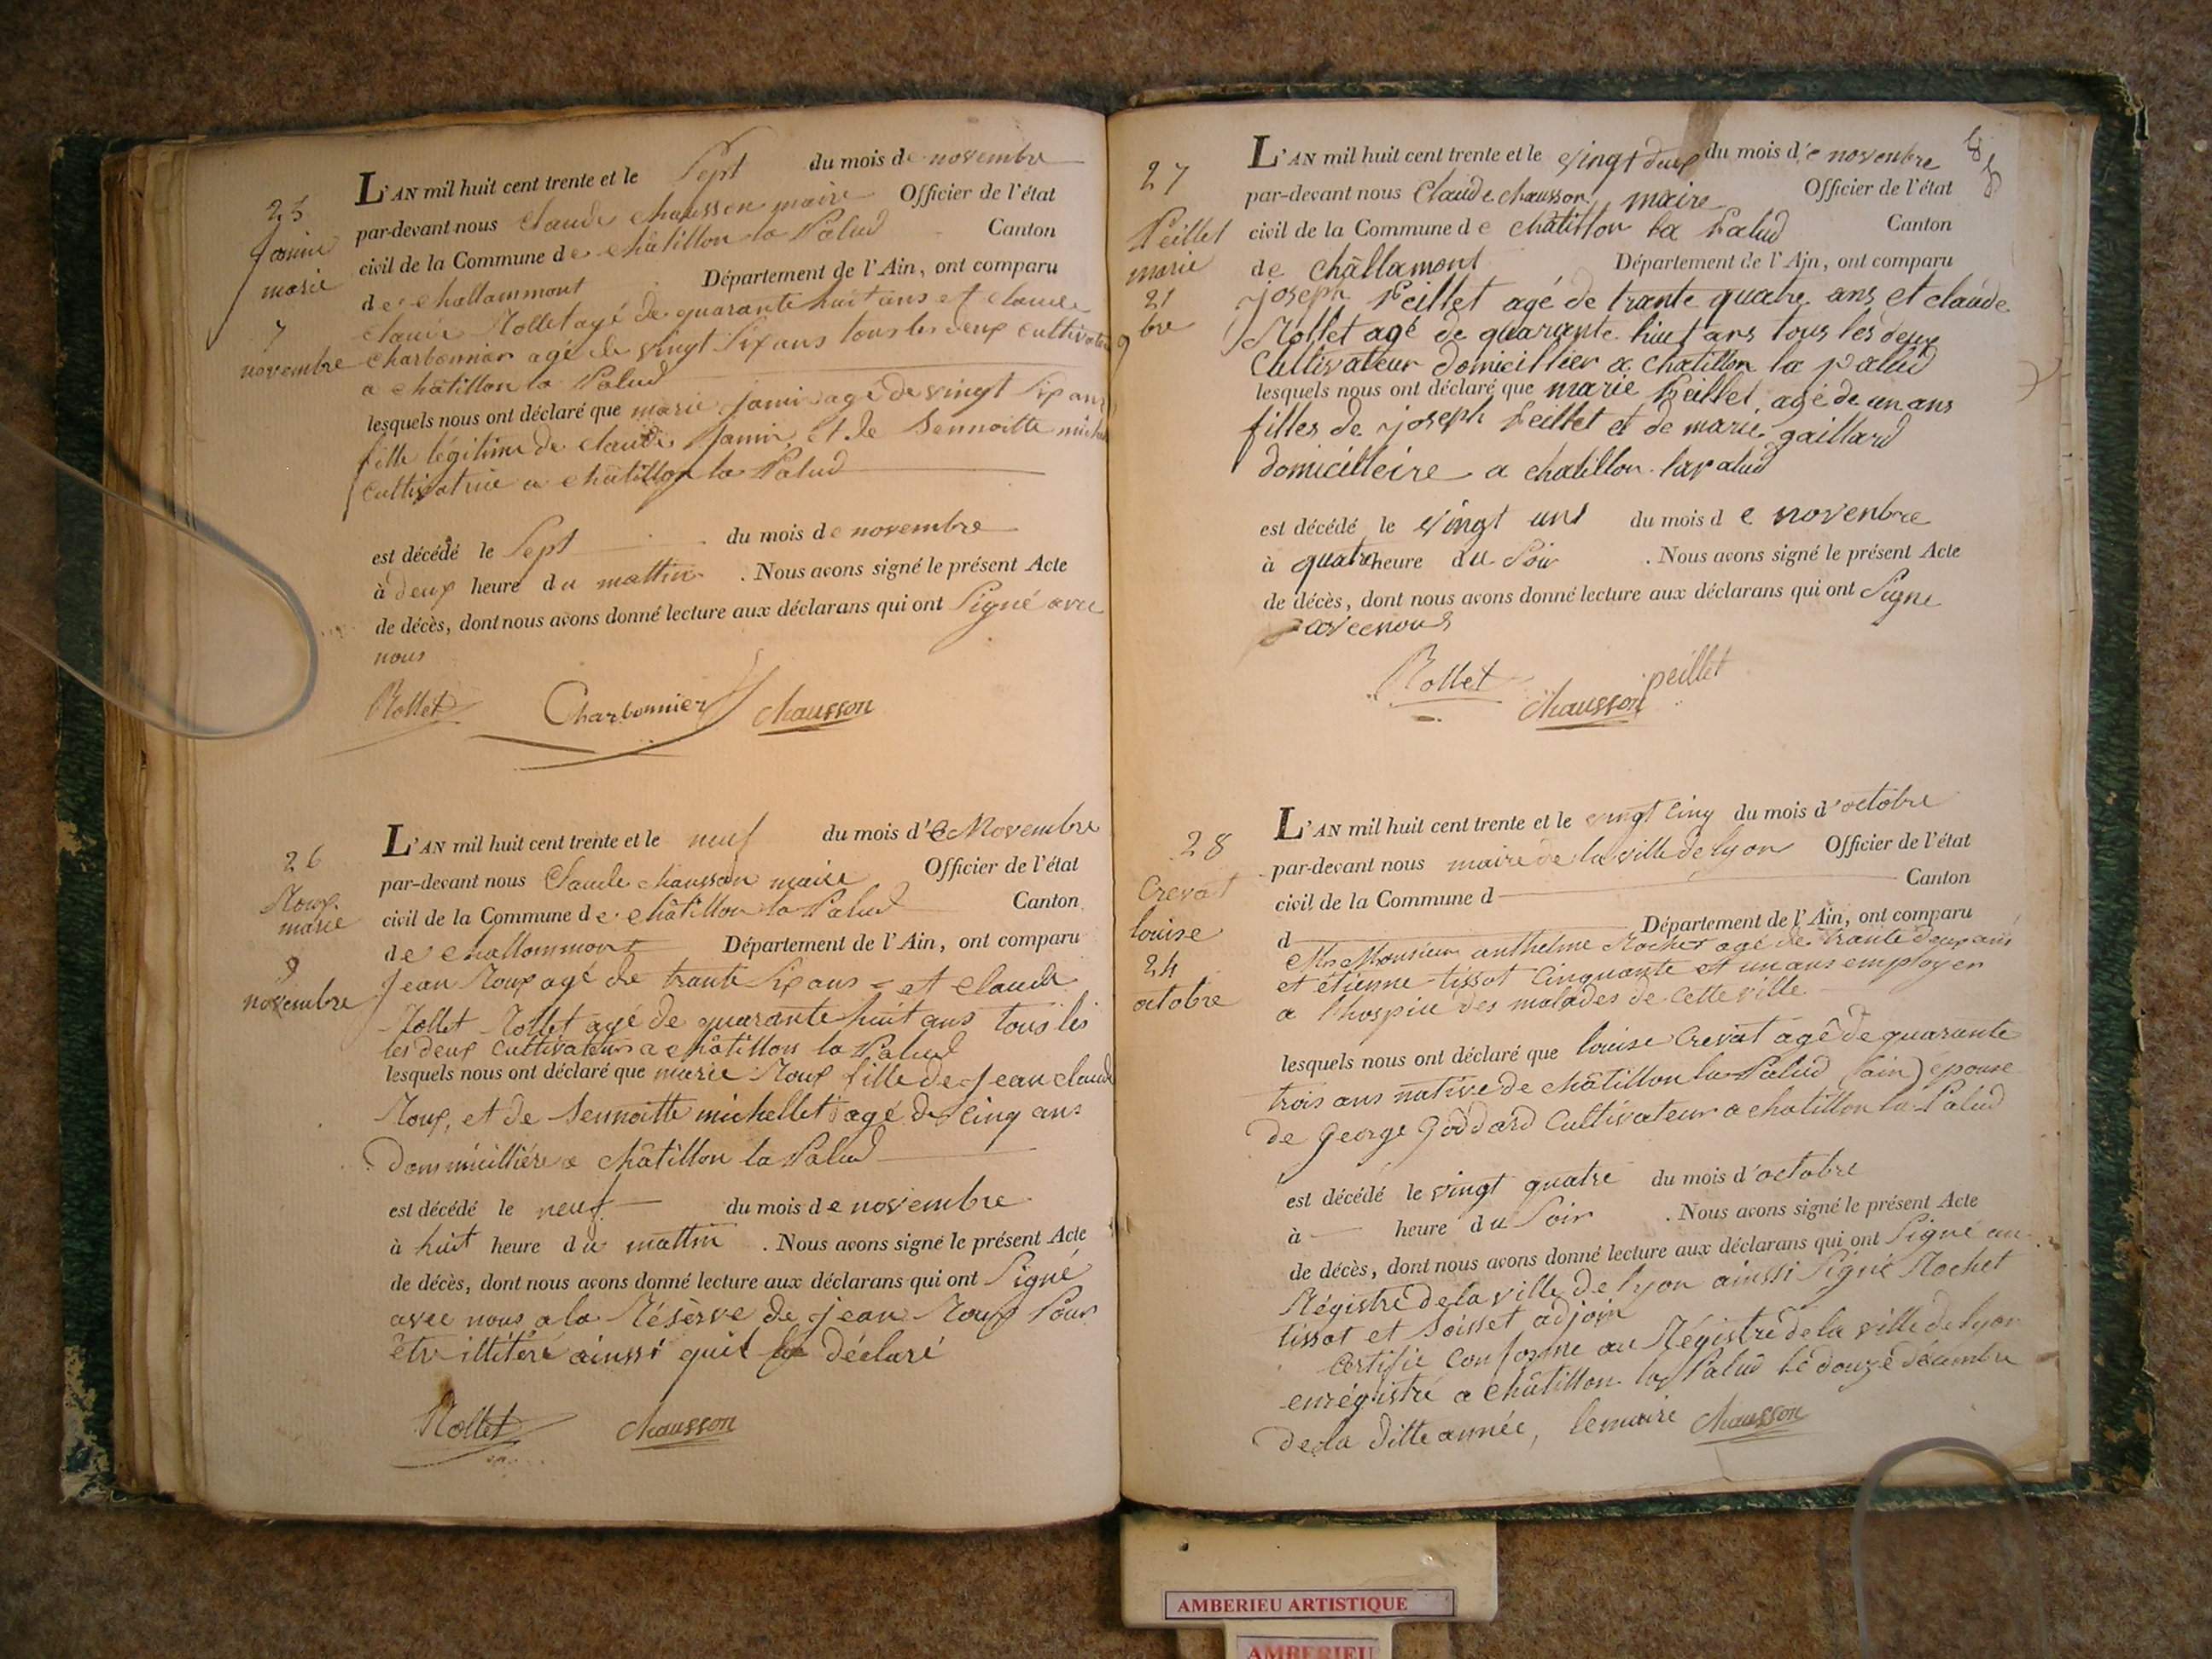 25
Jamin
marie
7
novembre
L'AN mil huit cent trente et le Sept du mois de novembre
par-devant nous Claude chausson maire Officier de l'état
civil de la Commune de châtillon la Palud Canton
de challammont Département de l'Ain, ont comparu
claude Rollet agé de quarante huit ans et claude
charbonnier agé de vingt Six ans tous les deux cultivateur
a châtillon la Palud
lesquels nous ont déclaré que marie jamin agé de vingt Six ans
fille légitime de claude Jamin et de Sennoitte
cultivatrice a châtillon la Palud
est décédé le Sept du mois de novembre
à deux heure du mattin . Nous avons signé le présent Acte
de décès, dont nous avons donné lecture aux déclarans qui ont Signé avec
nous
Rollet Charbonnier chausson
26
Roux
marie
9
novembre
L'AN mil huit cent trente et le neuf du mois d'e Novembre
par-devant nous Claude chausson maire Officier de l'état
civil de la Commune de châtillon la Palud Canton
de challammont Département de l'Ain, ont comparu
Jean Roux agé de trante Six ans et claude
Rollet Rollet agé de quarante huit ans tous les
les deux cultivateur a châtillon la Palud
lesquels nous ont déclaré que marie Roux fille de jean claude
Roux, et de Sennoitte michellet agé de Cinq ans
Dommicillière a châtillon la Palud
est décédé le neuf du mois de novembre
à huit heure du mattin . Nous avons signé le présent Acte
de décès, dont nous avons donné lecture aux déclarans qui ont Signé
avec nous a la Résèrve de jean Roux Pour
être illitéré ainssi quil déclaré
Rollet chausson
27
Peillet
marie
21
9bre
L'AN mil huit cent trente et le vingt deux du mois d'e novenbre
par-devant nous Claude chausson maire Officier de l'état
civil de la Commune de châtillon la Palud Canton
de châllamont Département de l'Ain, ont comparu
joseph Peillet agé de trante quatre ans et claude
Rollet agé de quarante huit ans tous les deux
Cultivateur domicillier a chatillon la palud
lesquels nous ont déclaré que marie Peillet, agé de un ans
filles de joseph Peillet et de marie gaillard
domicilleire a chatillon lapalud
est décédé le vingt unt du mois de novenbre
à quatre heure du Soir . Nous avons signé le présent Acte
de décès, dont nous avons donné lecture aux déclarans qui ont Signe
avecnous
Rollet chausson peillet
28
Crevat
louise
24
octobre
L'AN mil huit cent trente et le vingt Cinq du mois d'octobre
par-devant nous maire de la ville de lyon Officier de l'état
civil de la Commune d Canton
d Département de l'Ain, ont comparu
Monsieur anthelme Rochet agé de trante deux ans
et étienne tissot Cinquante et un ans employer
a l'hospice des malades de Cette ville
lesquels nous ont déclaré que louise Crevat agé de quarante
trois ans native de châtillon la Palud (ain) épouse
de George Goddard Cultivateur a chatillon la Palud
est décédé le vingt quatre du mois d'octobre
à heure du Soir . Nous avons signé le présent Acte
de décès, dont nous avons donné lecture aux déclarans qui ont Signé au
Régistre de la ville de lyon ainssi Signé Rochet
tissot et Soisset adjoin
Certifié Conforme au Régistre de la ville de lyon
enrégistré a châtillon la Palud le douze décembre
de la ditte année, lemaire chausson
AMBERIEU ARTISTIQUE
AMBERIEU